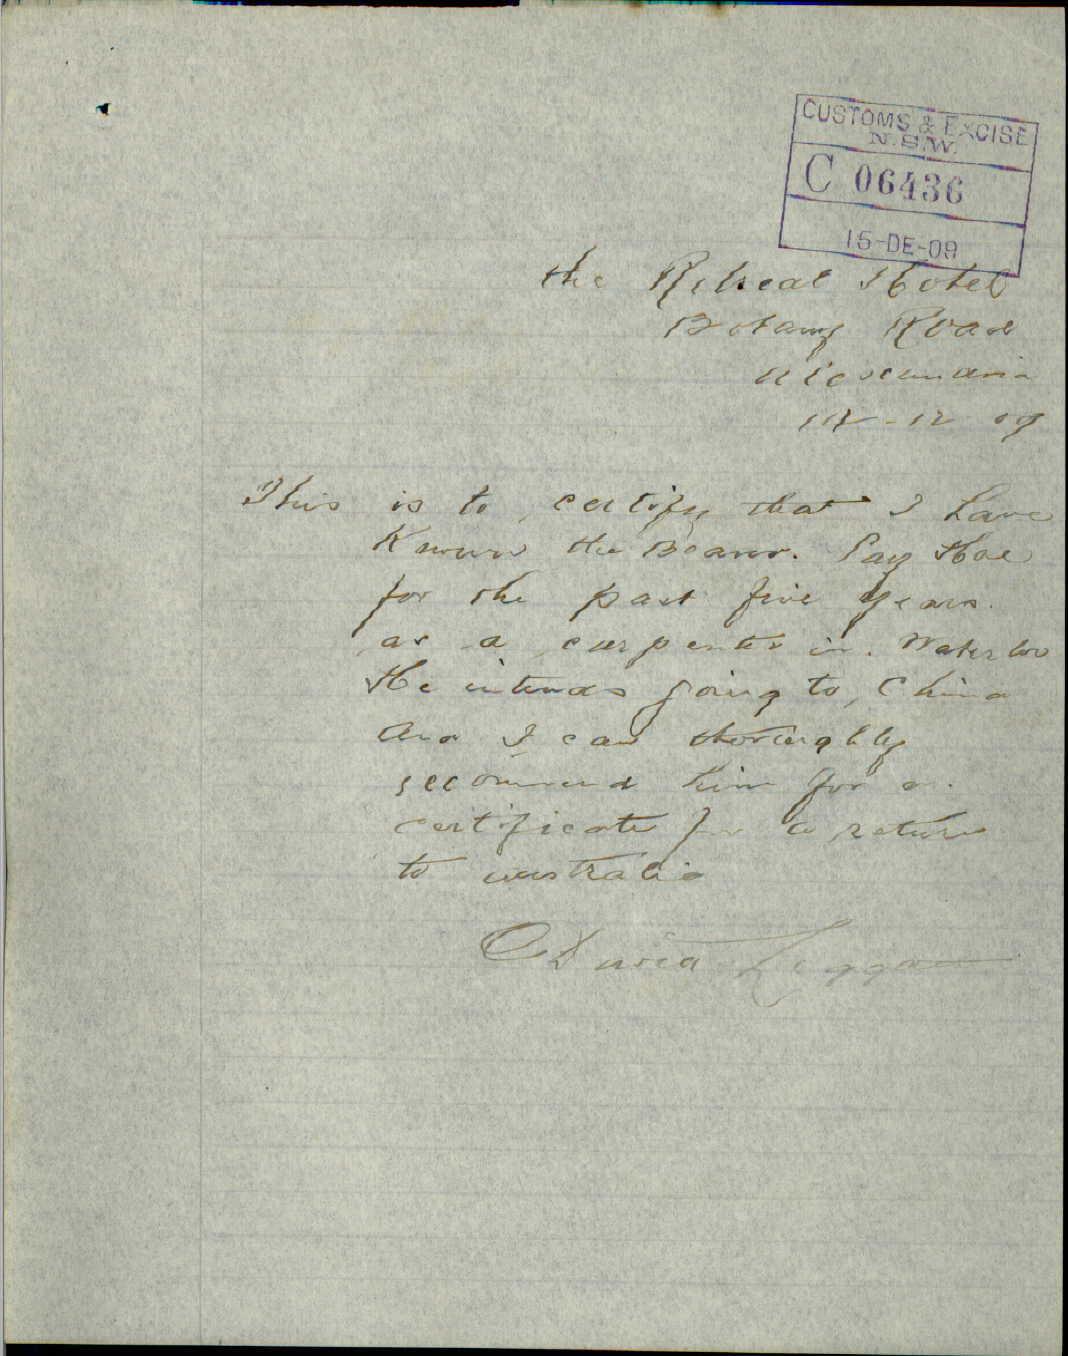 CUSTOMS & EXCISE
N.S.W.
C 06436
15-DE-09
the Retreat Hotel
Botany Road
Alexandria
12-12 09
This is to certify that I have
Known the Bearer. Pay Hoe
for the past five years.
as a carpenter in. Waterloo
He intends going to, China
And I can thoroughly
reccomend him for a.
certificate for a return
to australia
David Leggat